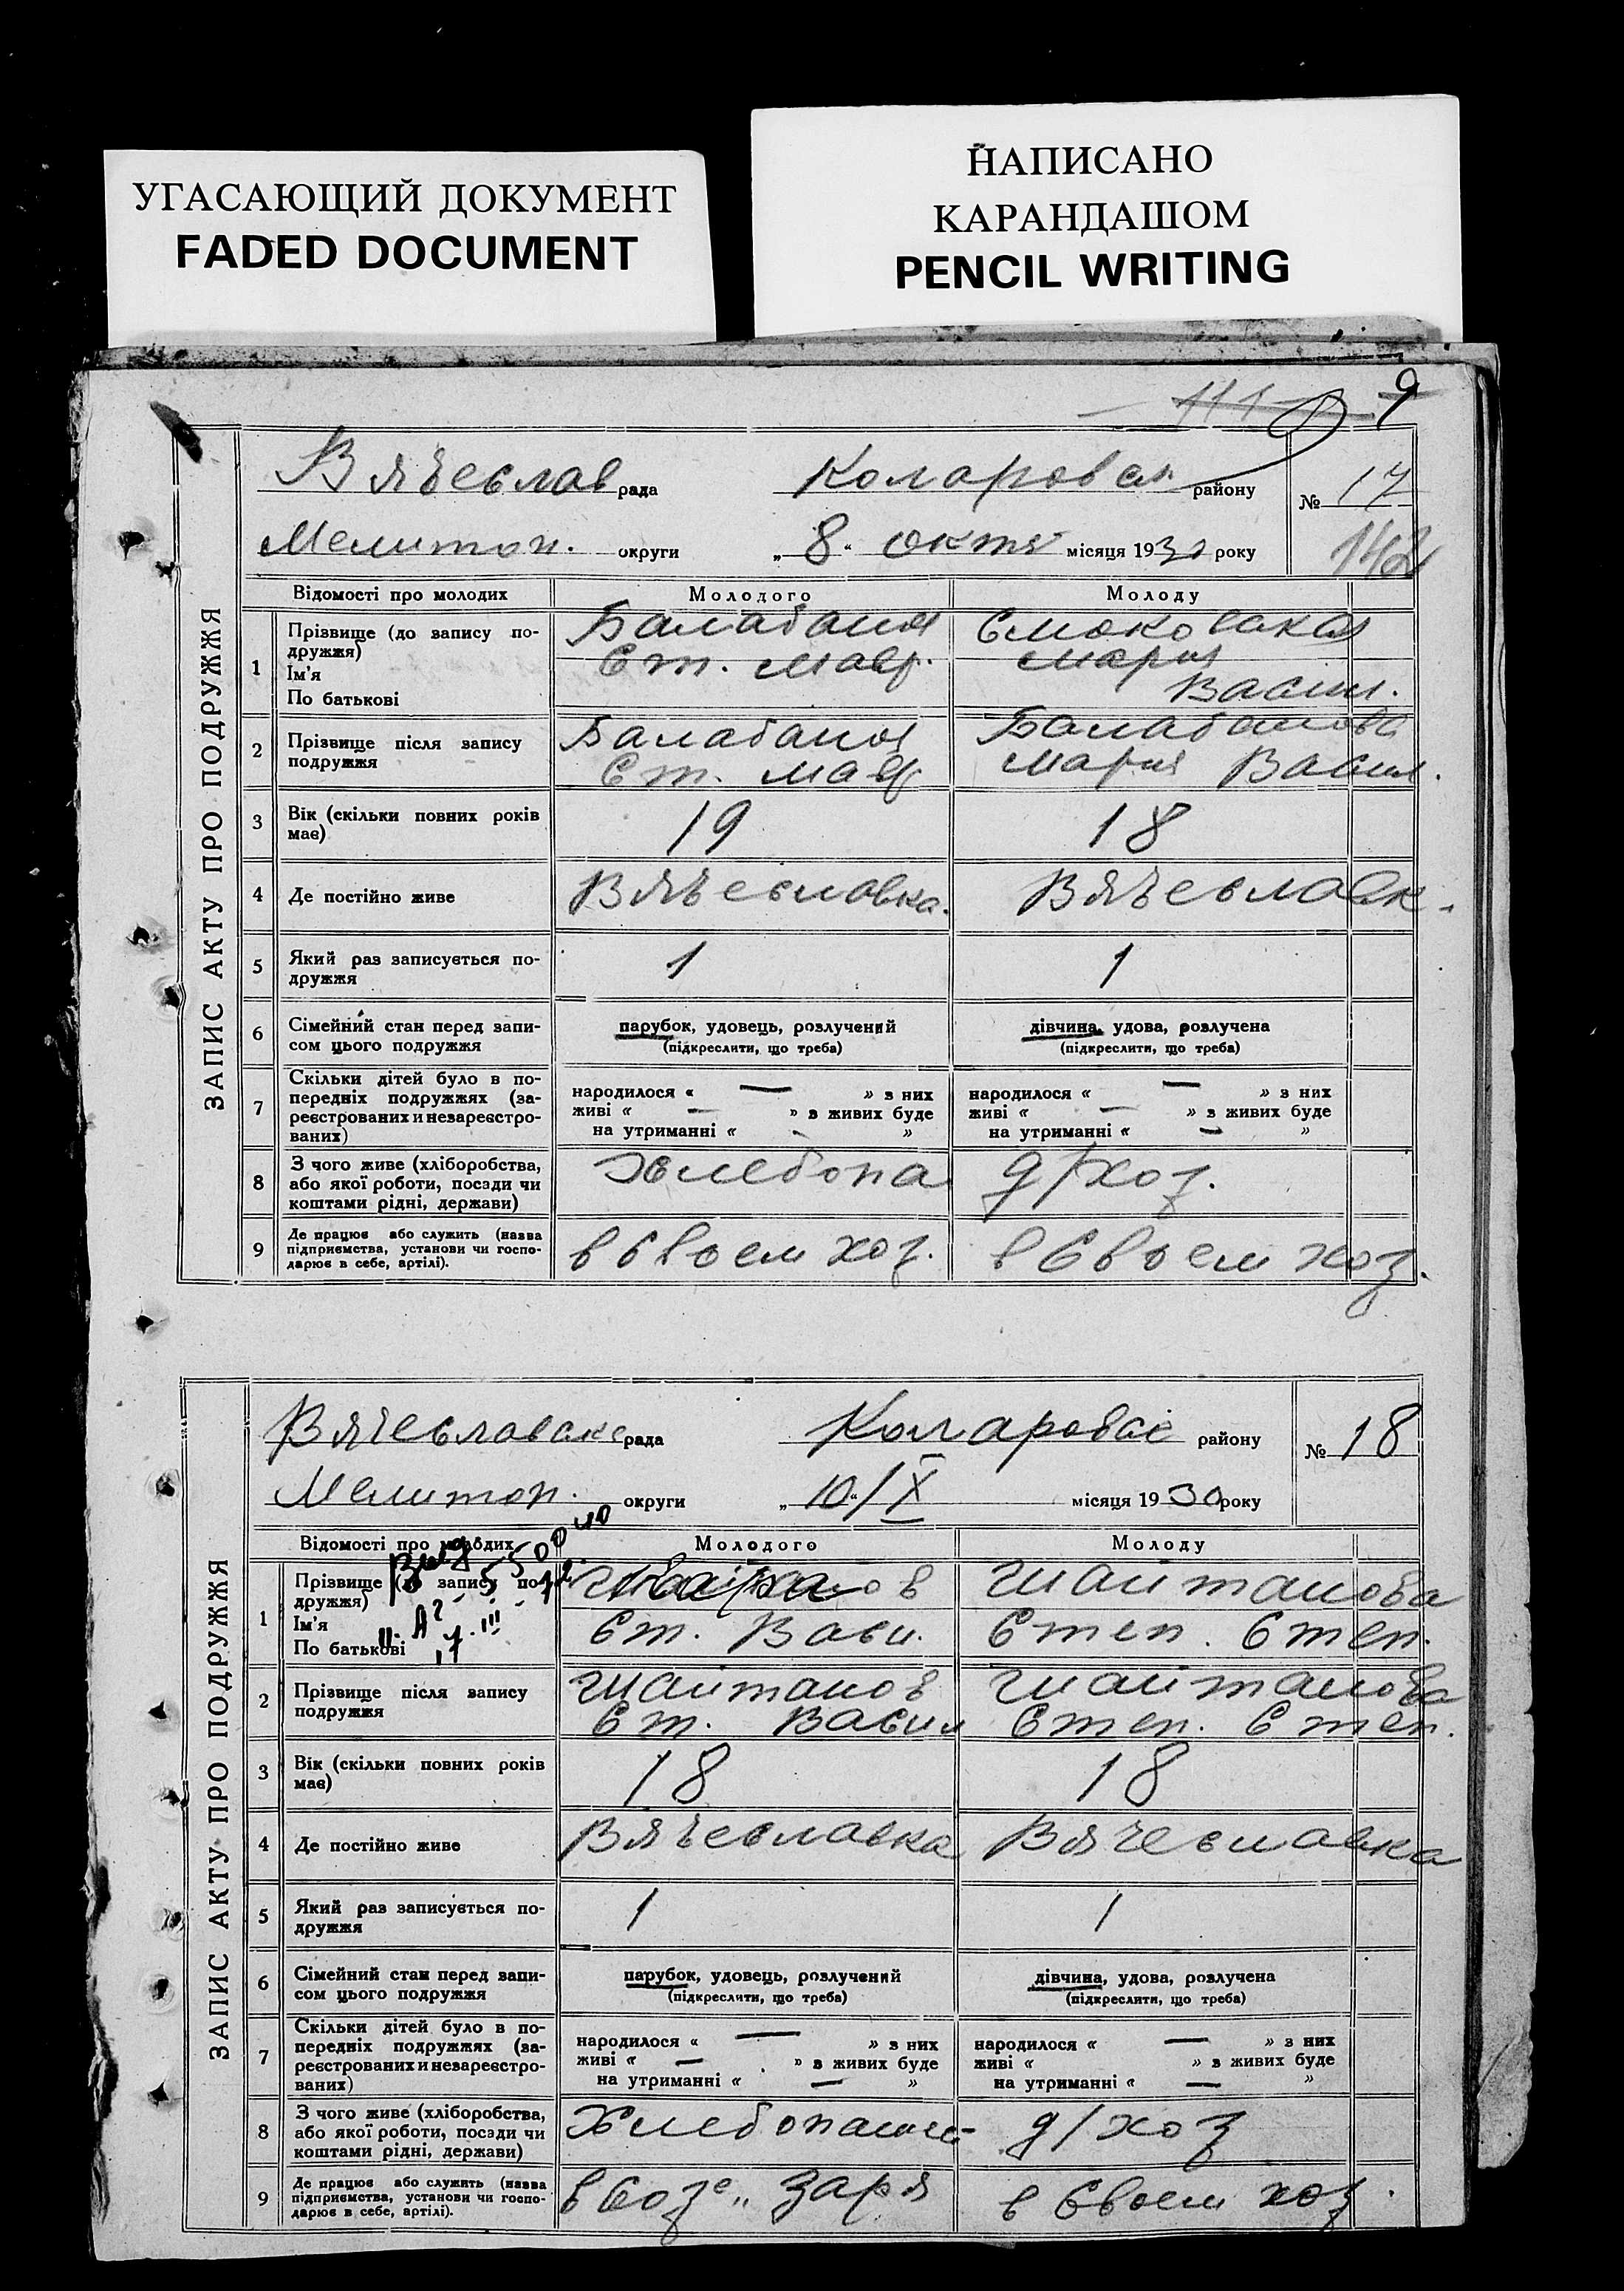 УГАСАЮЩИЙ ДОКУМЕНТ
FADED DOCUMENT
НАПИСАНО
КАРАНДАШОМ
PENCIL WRITING
9
ЗАПИС АКТУ ПРО ПОДРУЖЖЯ
Вячеслав рада Коларовск района
№ 17
Мелитоп. округи „ 8 “ октя місяця 1930 року
142
Відомості про молодих Молодого Молоду
1 Прізвище (до запису по-
дружжя)
Ім'я
По батькові
Балабанов
Ст. Мавр.
Смоковская
Мария
Васил.
2 Прізвище після запису
подружжя
Балабанов
Ст. Мавр
Балабанова
Мария Васил.
3 Вік (скільки повних років
має)
19 18
4 Де постійно живе Вячеславка. Вячеславк.
5 Який раз записується по-
дружжя
1 1
6 Сімейний стан перед запи-
сом цього подружжя
парубок, удовець, розлучений
(підкреслити, що треба)
дівчина, удова, розлучена
(підкреслити, що треба)
7 Скільки дітей було в по-
передніх подружжях (за-
реєстрованих и незареєстро-
ваних)
народилося « — » з них
живі « — » з живих буде
на утриманні « - »
народилося « — » з них
живі « — » з живих буде
на утриманні « — »
8 З чого живе (хліборобства,
або якої роботи, посади чи
коштами рідні, держави)
Хлебопа д/хоз.
9 Де працює або служить (назва
підприємства, установи чи госпо-
дарює в себе, артілі).
в своем хоз. в своем хоз.
ЗАПИС АКТУ ПРО ПОДРУЖЖЯ
Вячеславске рада Коларовск району
№ 18
Мелитоп. округи „ 10 “ / X місяця 1930 року
Відомості про молодих Молодого Молоду
1 Прізвище (до запису по-
дружжя)
Ім'я
По батькові
Ст. Васи.
Шайтанова
Степ. Степ.
2 Прізвище після запису
подружжя
Шайтанов
Ст. Васил
Шайтанова
Степ. Степ.
3 Вік (скільки повних років
має)
18 18
4 Де постійно живе Вячеславка Вячеславка
5 Який раз записується по-
дружжя
1 1
6 Сімейний стан перед запи-
сом цього подружжя
парубок, удовець, розлучений
(підкреслити, що треба)
дівчина, удова, розлучена
(підкреслити, що треба)
7 Скільки дітей було в по-
передніх подружжях (за-
реєстрованих и незареєстро-
ваних)
народилося « — » з них
живі « — » з живих буде
на утриманні « — »
народилося « — » з них
живі « » з живих буде
на утриманні « — »
8 З чого живе (хліборобства,
або якої роботи, посади чи
коштами рідні, держави)
Хлебопашец д/хоз
9 Де працює або служить (назва
підприємства, установи чи госпо-
дарює в себе, артілі).
в созе „ Заря в своем хоз.